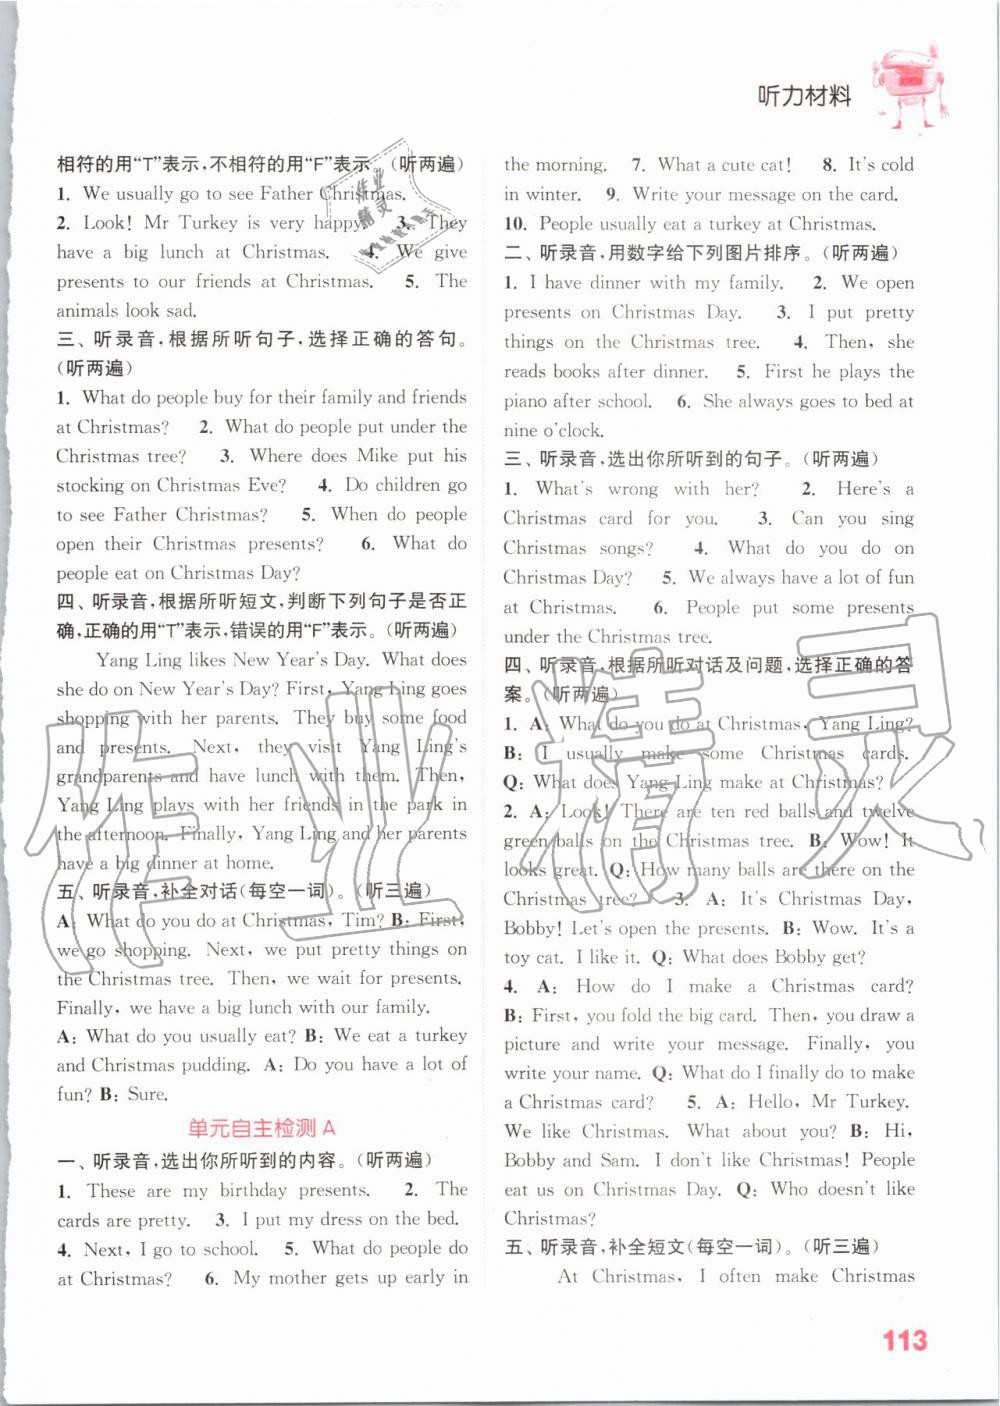 听力材料
相符的用“T”表示,不相符的用“F”表示。(听两遍)
1. We usually go to see Father Christmas.
2. Look! Mr Turkey is very happy. 3. They
have a big lunch at Christmas. 4. We give
presents to our friends at Christmas. 5. The
animals look sad.
三、听录音,根据所听句子,选择正确的答句。
(听两遍)
1. What do people buy for their family and friends
at Christmas? 2. What do people put under the
Christmas tree? 3. Where does Mike put his
stocking on Christmas Eve? 4. Do children go
to see Father Christmas? 5. When do people
open their Christmas presents? 6. What do
people eat on Christmas Day?
四、听录音,根据所听短文,判断下列句子是否正
确,正确的用“T”表示,错误的用“F”表示。(听两遍)
Yang Ling likes New Year's Day. What does
she do on New Year's Day? First, Yang Ling goes
shopping with her parents. They buy some food
and presents. Next, they visit Yang Ling's
grandparents and have lunch with them. Then,
Yang Ling plays with her friends in the park in
the afternoon. Finally, Yang Ling and her parents
have a big dinner at home.
五、听录音,补全对话(每空一词)。(听三遍)
A: What do you do at Christmas, Tim? B: First,
we go shopping. Next, we put pretty things on
the Christmas tree. Then, we wait for presents.
Finally, we have a big lunch with our family.
A: What do you usually eat? B: We eat a turkey
and Christmas pudding. A: Do you have a lot of
fun? B: Sure.
单元自主检测 A
一、听录音,选出你所听到的内容。(听两遍)
1. These are my birthday presents. 2. The
cards are pretty. 3. I put my dress on the bed.
4. Next, I go to school. 5. What do people do
at Christmas? 6. My mother gets up early in
the morning. 7. What a cute cat! 8. It's cold
in winter. 9. Write your message on the card.
10. People usually eat a turkey at Christmas.
二、听录音,用数字给下列图片排序。(听两遍)
1. I have dinner with my family. 2. We open
presents on Christmas Day. 3. I put pretty
things on the Christmas tree. 4. Then, she
reads books after dinner. 5. First he plays the
piano after school. 6. She always goes to bed at
nine o'clock.
三、听录音,选出你所听到的句子。(听两遍)
1. What's wrong with her? 2. Here's a
Christmas card for you. 3. Can you sing
Christmas songs? 4. What do you do on
Christmas Day? 5. We always have a lot of fun
at Christmas. 6. People put some presents
under the Christmas tree.
四、听录音,根据所听对话及问题,选择正确的答
案。(听两遍)
1. A: What do you do at Christmas, Yang Ling?
B: I usually make some Christmas cards.
Q: What does Yang Ling make at Christmas?
2. A: Look! There are ten red balls and twelve
green balls on the Christmas tree. B: Wow! It
looks great. Q: How many balls are there on the
Christmas tree? 3. A: It's Christmas Day,
Bobby! Let's open the presents. B: Wow. It's a
toy cat. I like it. Q: What does Bobby get?
4. A: How do I make a Christmas card?
B: First, you fold the big card. Then, you draw a
picture and write your message. Finally, you
write your name. Q: What do I finally do to make
a Christmas card? 5. A: Hello, Mr Turkey.
We like Christmas. What about you? B: Hi,
Bobby and Sam. I don't like Christmas! People
eat us on Christmas Day. Q: Who doesn't like
Christmas?
五、听录音,补全短文(每空一词)。(听三遍)
At Christmas, I often make Christmas
113
作业精灵
作业
精灵